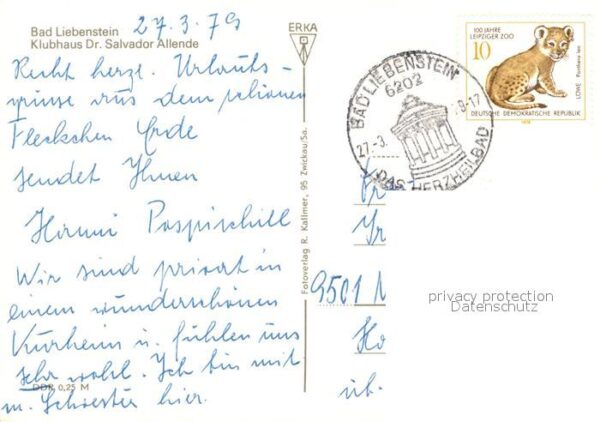 Bad Liebenstein
Klubhaus Dr. Salvador Allende
27.3.79
Recht herzl. Urlaubs-
grüsse aus dem schönen
Fleckchen Erde
sendet Ihnen
Hanni Pospischill
Wir sind privat in
einem wunderschönen
Kurheim u. fühlen uns
sehr wohl. Ich bin mit
m. Schwester hier.
DDR 0,25 M
ERKA
Fotoverlag R. Kallmer, 95 Zwickau/Sa.
BAD LIEBENSTEIN
6202
27.-3.
9-17
DAS HERZHEILBAD
100 JAHRE
LEIPZIGER ZOO
10
LÖWE Panthera leo
DEUTSCHE DEMOKRATISCHE REPUBLIK
1978
9501
üb.
privacy protection
Datenschutz